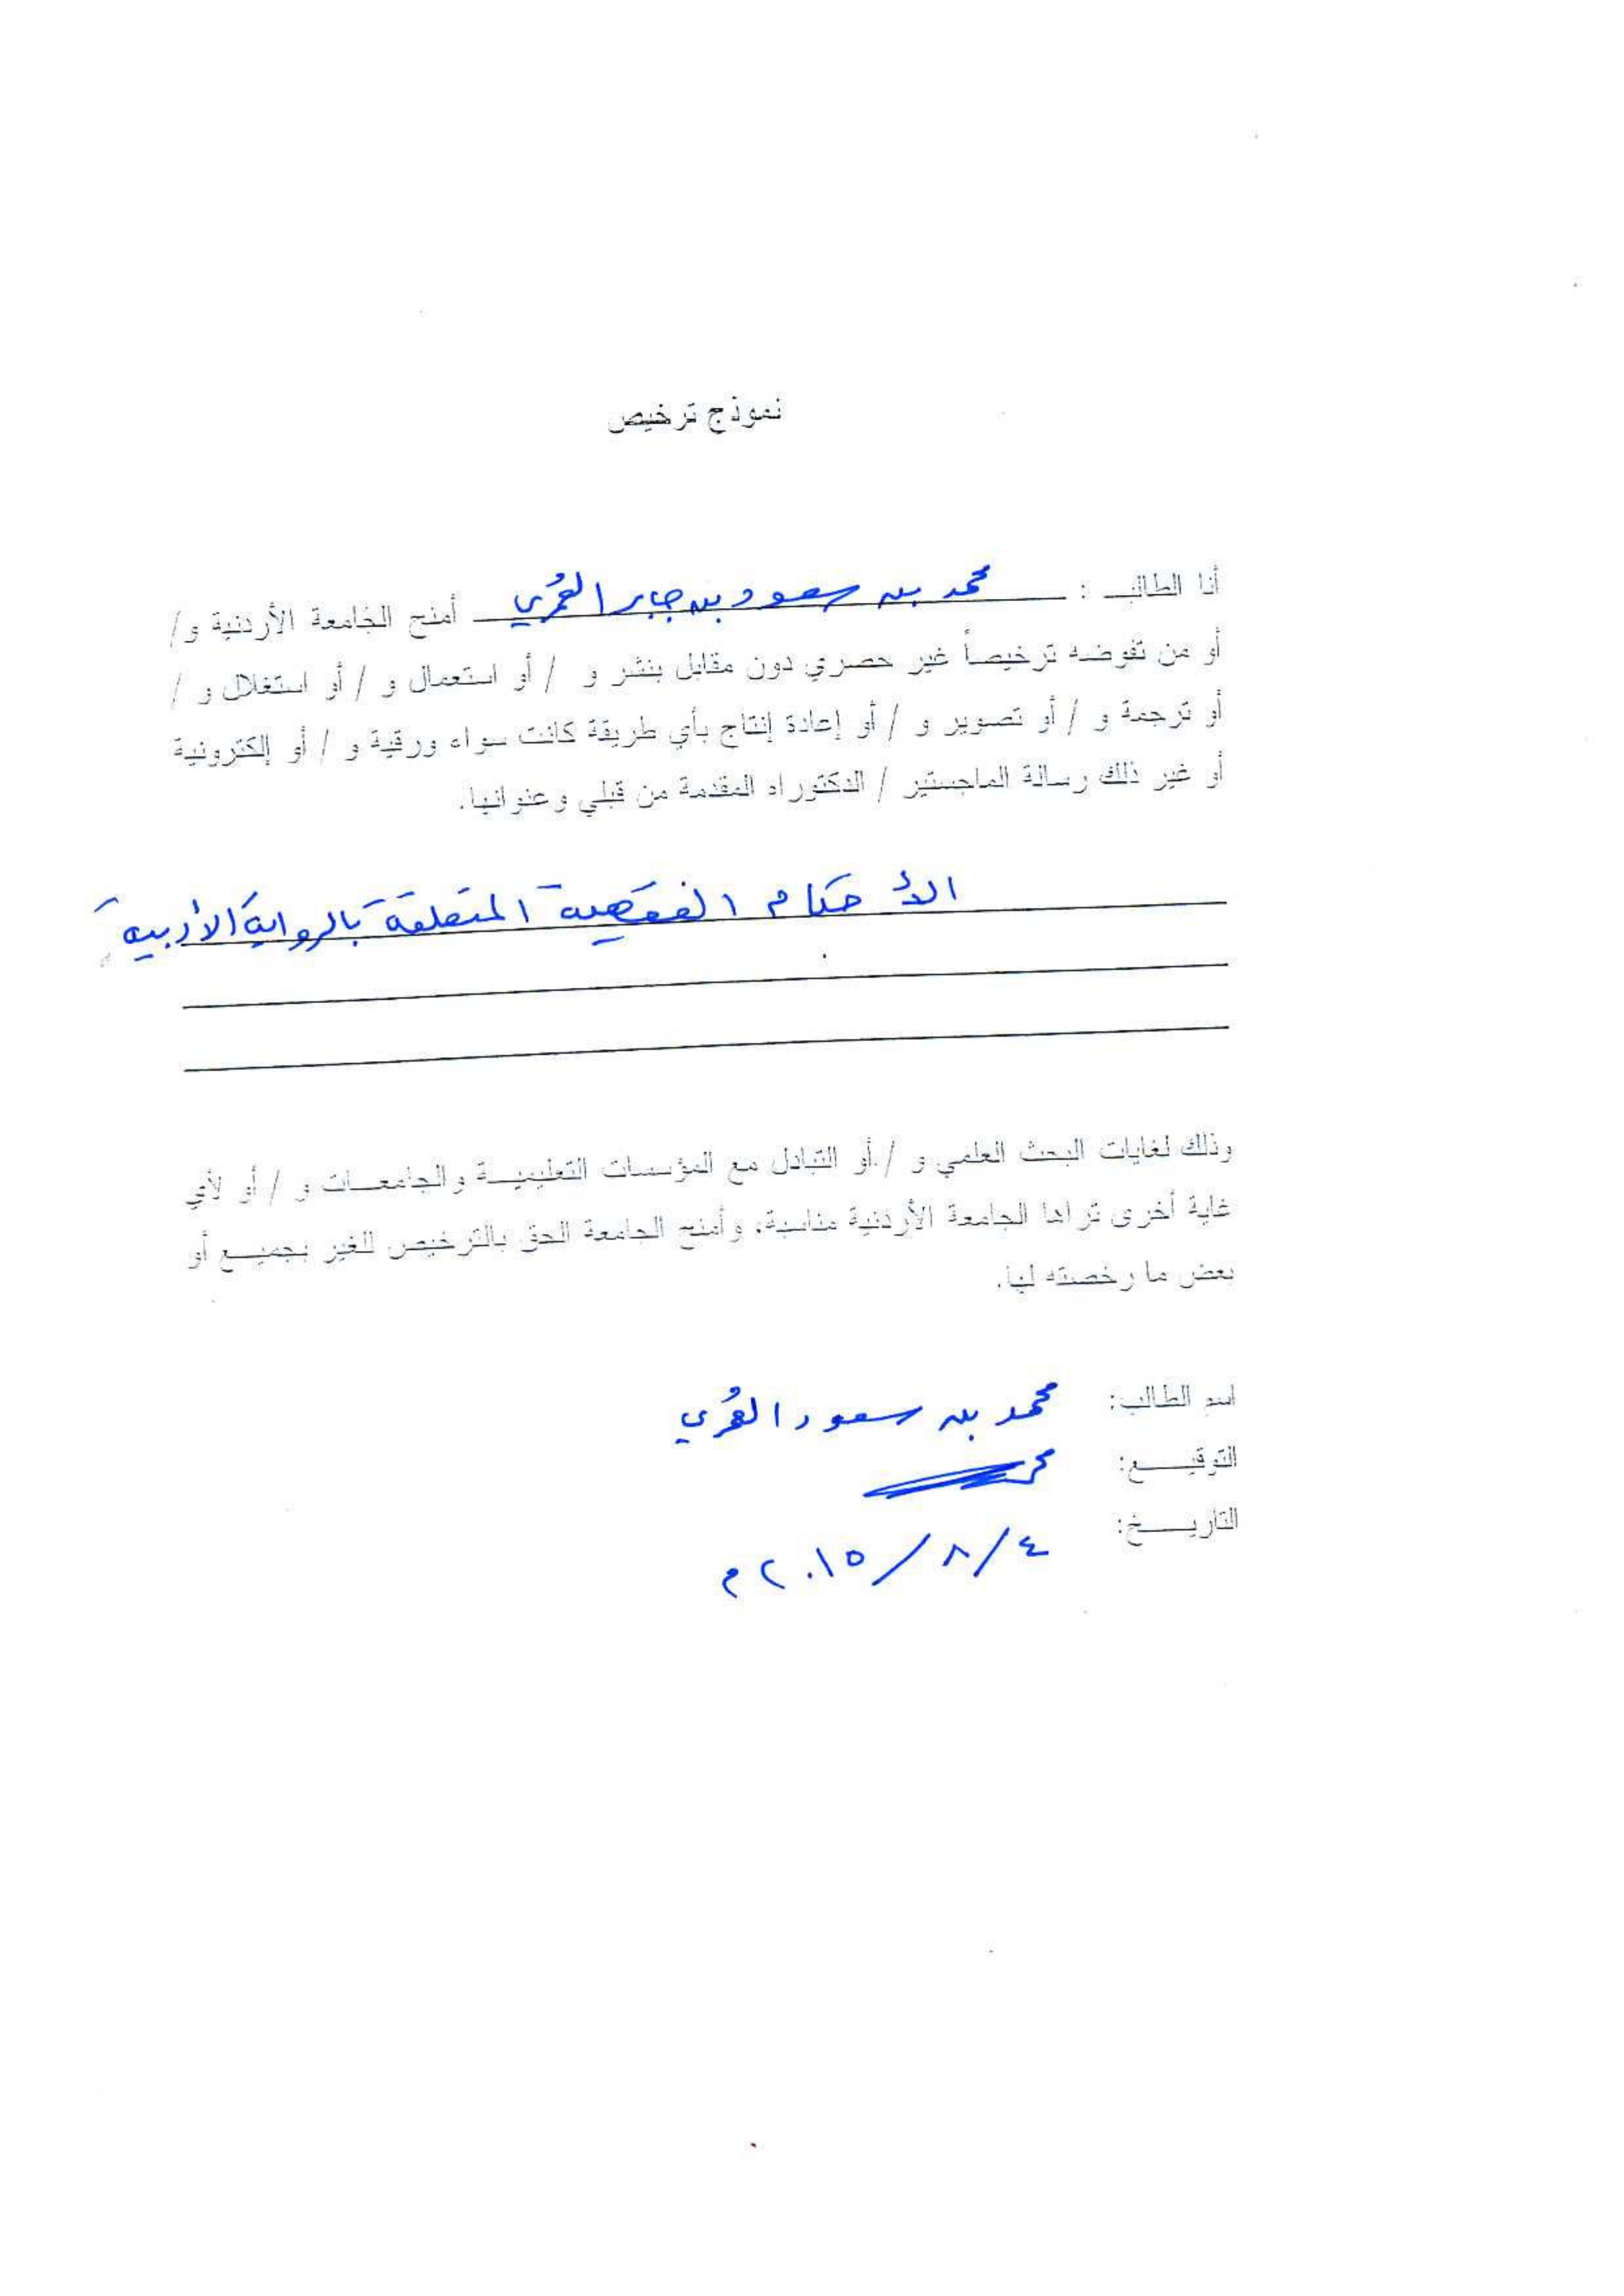 نموذج ترخيص
أنا الطالب : محمد بن سعود بن جابر العُمري أمنح الجامعة الأردنية و/
أو من تفوضه ترخيصاً غير حصري دون مقابل بنشر و / أو استعمال و / أو استغلال و /
أو ترجمة و / أو تصوير و / أو إعادة إنتاج بأي طريقة كانت سواء ورقية و / أو إلكترونية
أو غير ذلك رسالة الماجستير / الدكتوراه المقدمة من قبلي وعنوانها.
الأحكام الفقهية المتعلقة بالرواية الأدبية
وذلك لغايات البحث العلمي و / أو التبادل مع المؤسسات التعليمية والجامعات و / أو لأي
غاية أخرى تراها الجامعة الأردنية مناسبة، وأمنح الجامعة الحق بالترخيص للغير بجميع أو
بعض ما رخصته لها.
اسم الطالب: محمد بن سعود العُمري
التوقيع:
التاريخ: ٤/ ٨/ ٢٠١٥م